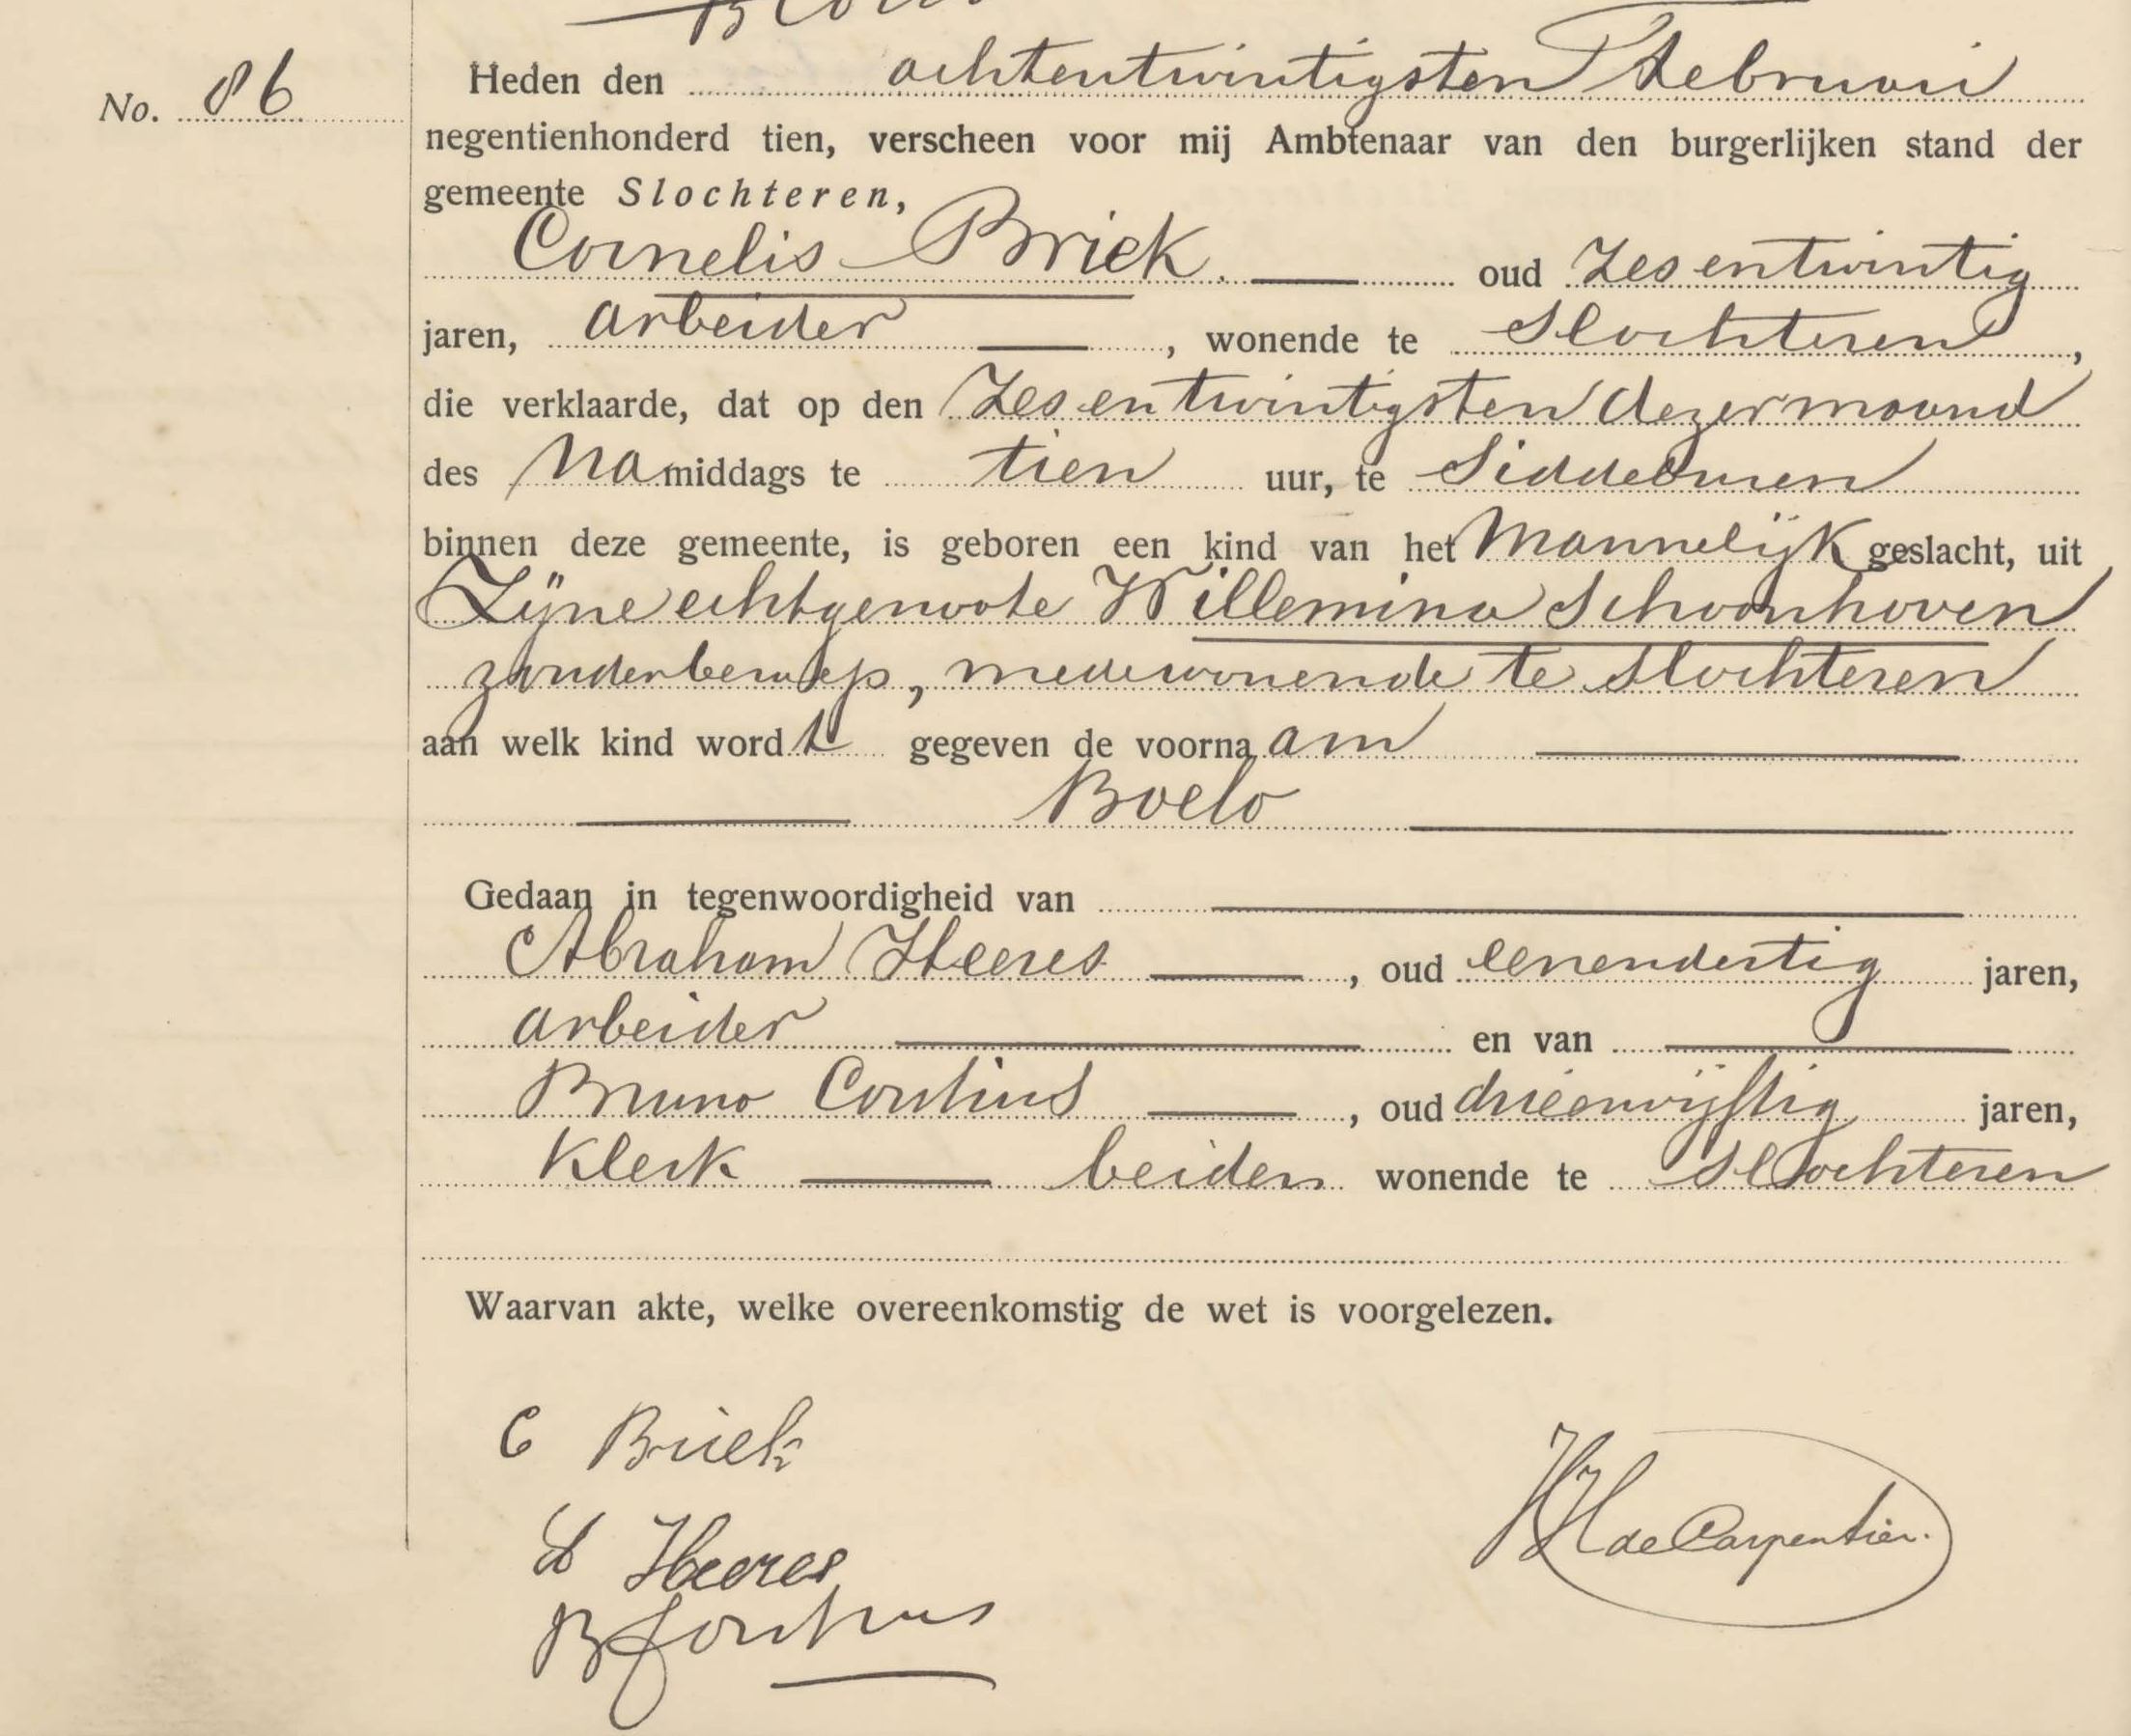 No. 86
Heden den achtentwintigsten Februari
negentienhonderd tien, verscheen voor mij Ambtenaar van den burgerlijken stand der
gemeente Slochteren,
Cornelis Briek. oud Zesentwintig
jaren, arbeider, wonende te Slochteren,
die verklaarde, dat op den Zesentwintigsten dezer maand
des Namiddags te tien uur, te Siddeburen
binnen deze gemeente, is geboren een kind van het Mannelijk geslacht, uit
Zijne echtgenoote Willemina Schoonhoven,
zonder beroep, medewonende te Slochteren
aan welk kind wordt gegeven de voornaam
Boelo
Gedaan in tegenwoordigheid van
Abraham Heeres, oud eenendertig jaren,
arbeider en van
Bruno Contius, oud drieenvijftig jaren,
Klerk beiden wonende te Slochteren
Waarvan akte, welke overeenkomstig de wet is voorgelezen.
C Briek
Heeres
B Contius
de Carpentier.